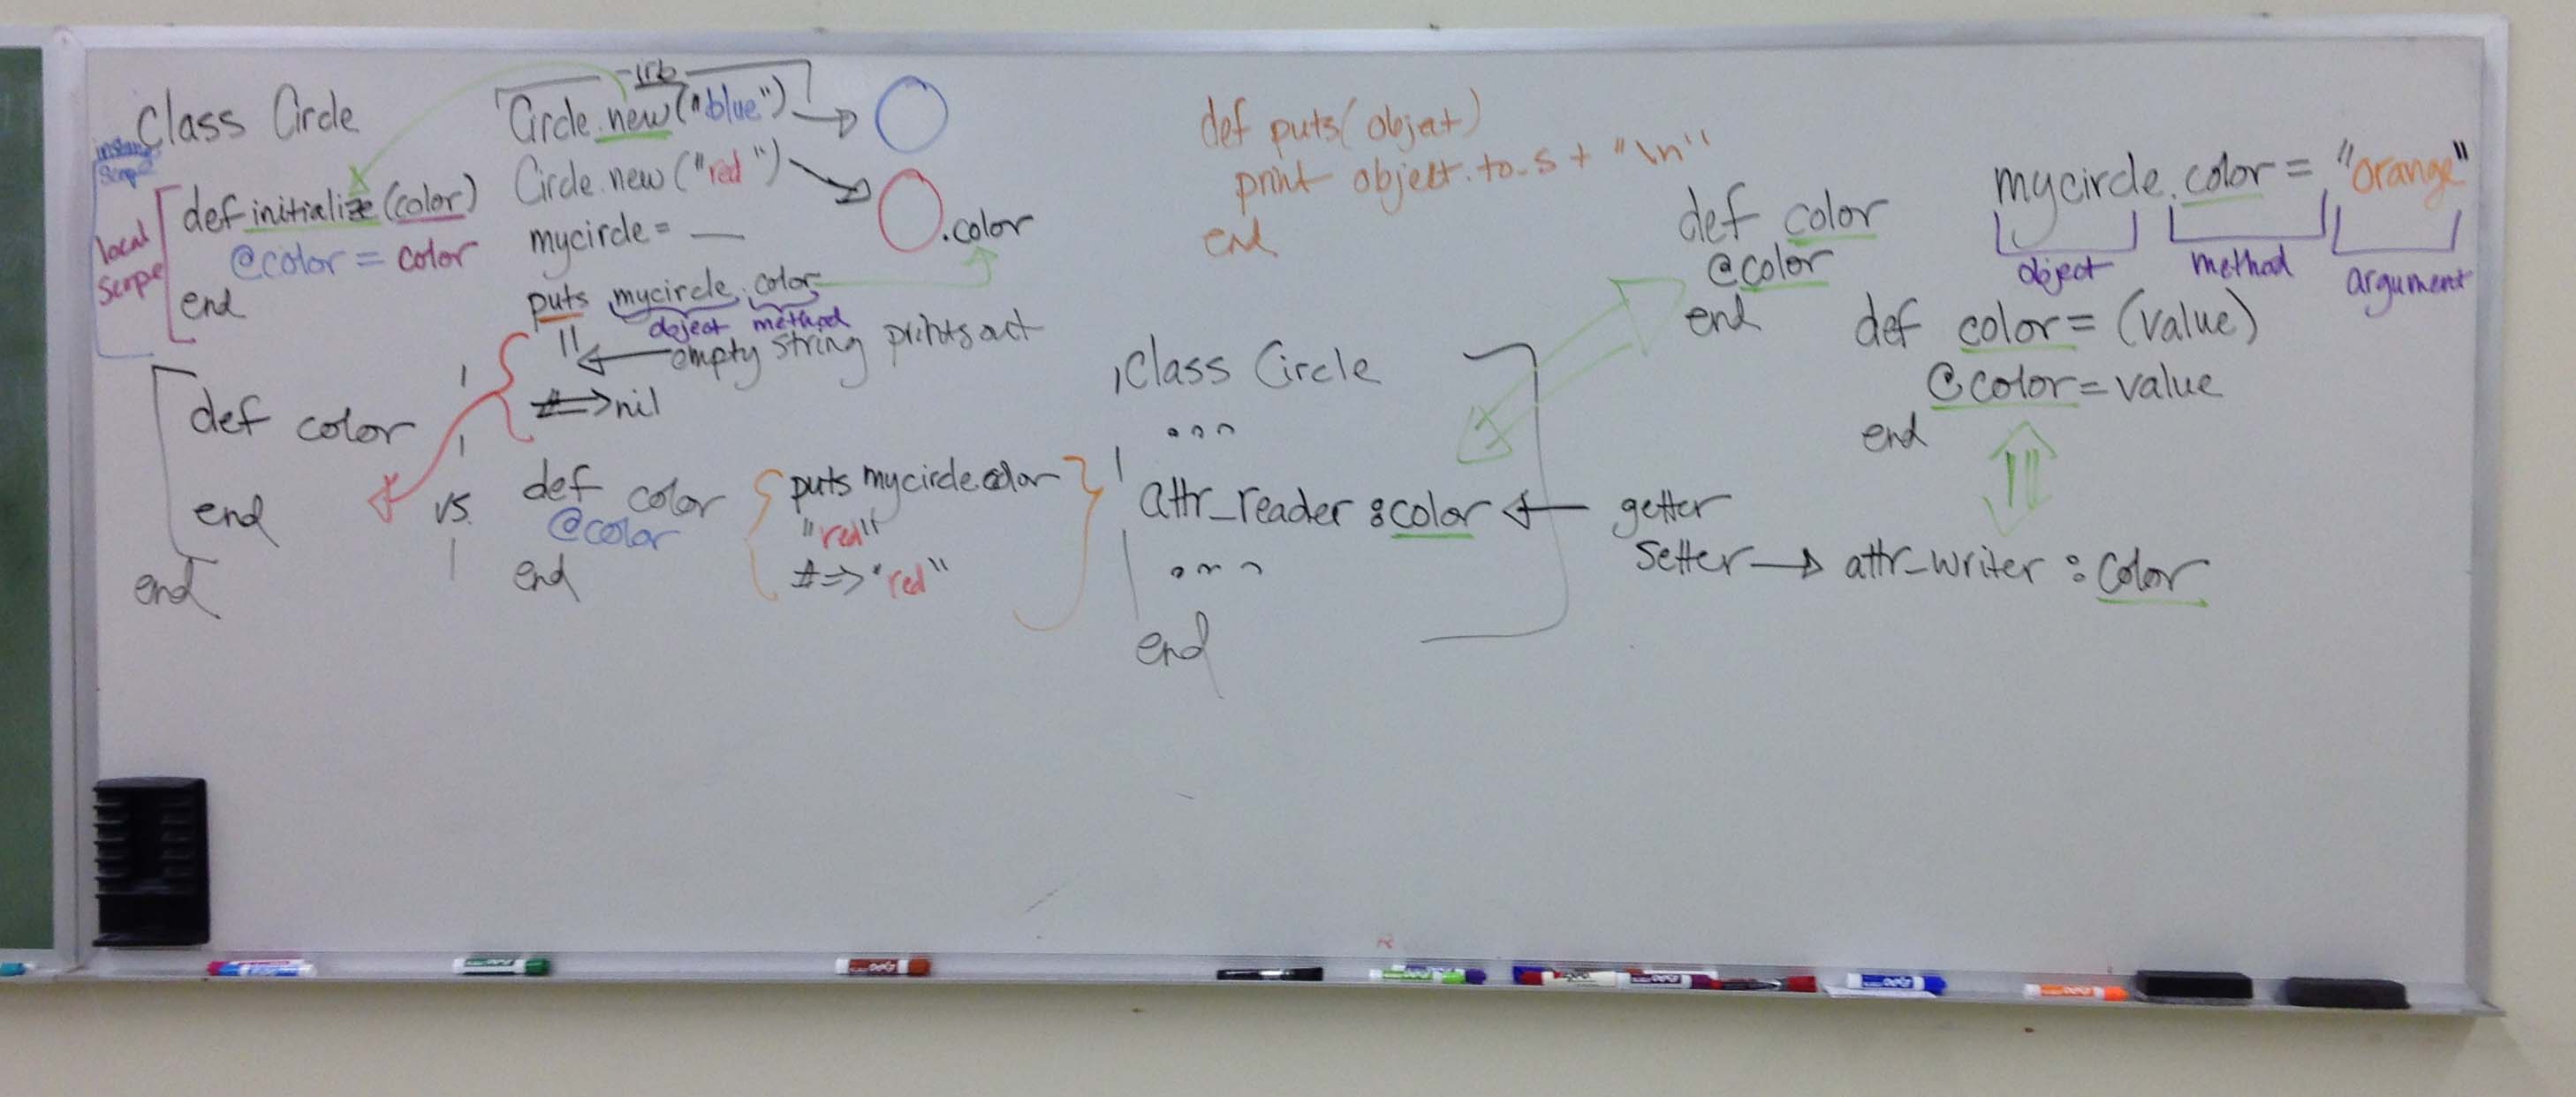 Class Circle
instance
Scope
local
Scope
def initialize (color)
@color = color
end
def color
end
end
irb
Circle.new("blue")
Circle.new("red")
mycircle = __
.color
puts mycircle.color
object method
"
empty string prints out
#=>nil
vs.
def color
@color
end
puts mycircle.color
"red"
#=> "red"
def puts(object)
print object.to_s + "\n"
end
Class Circle
...
attr_reader :color
...
end
getter
Setter
attr_writer :color
def color
@color
end
mycircle.color = "orange"
object
method
argument
def color= (value)
@color=value
end